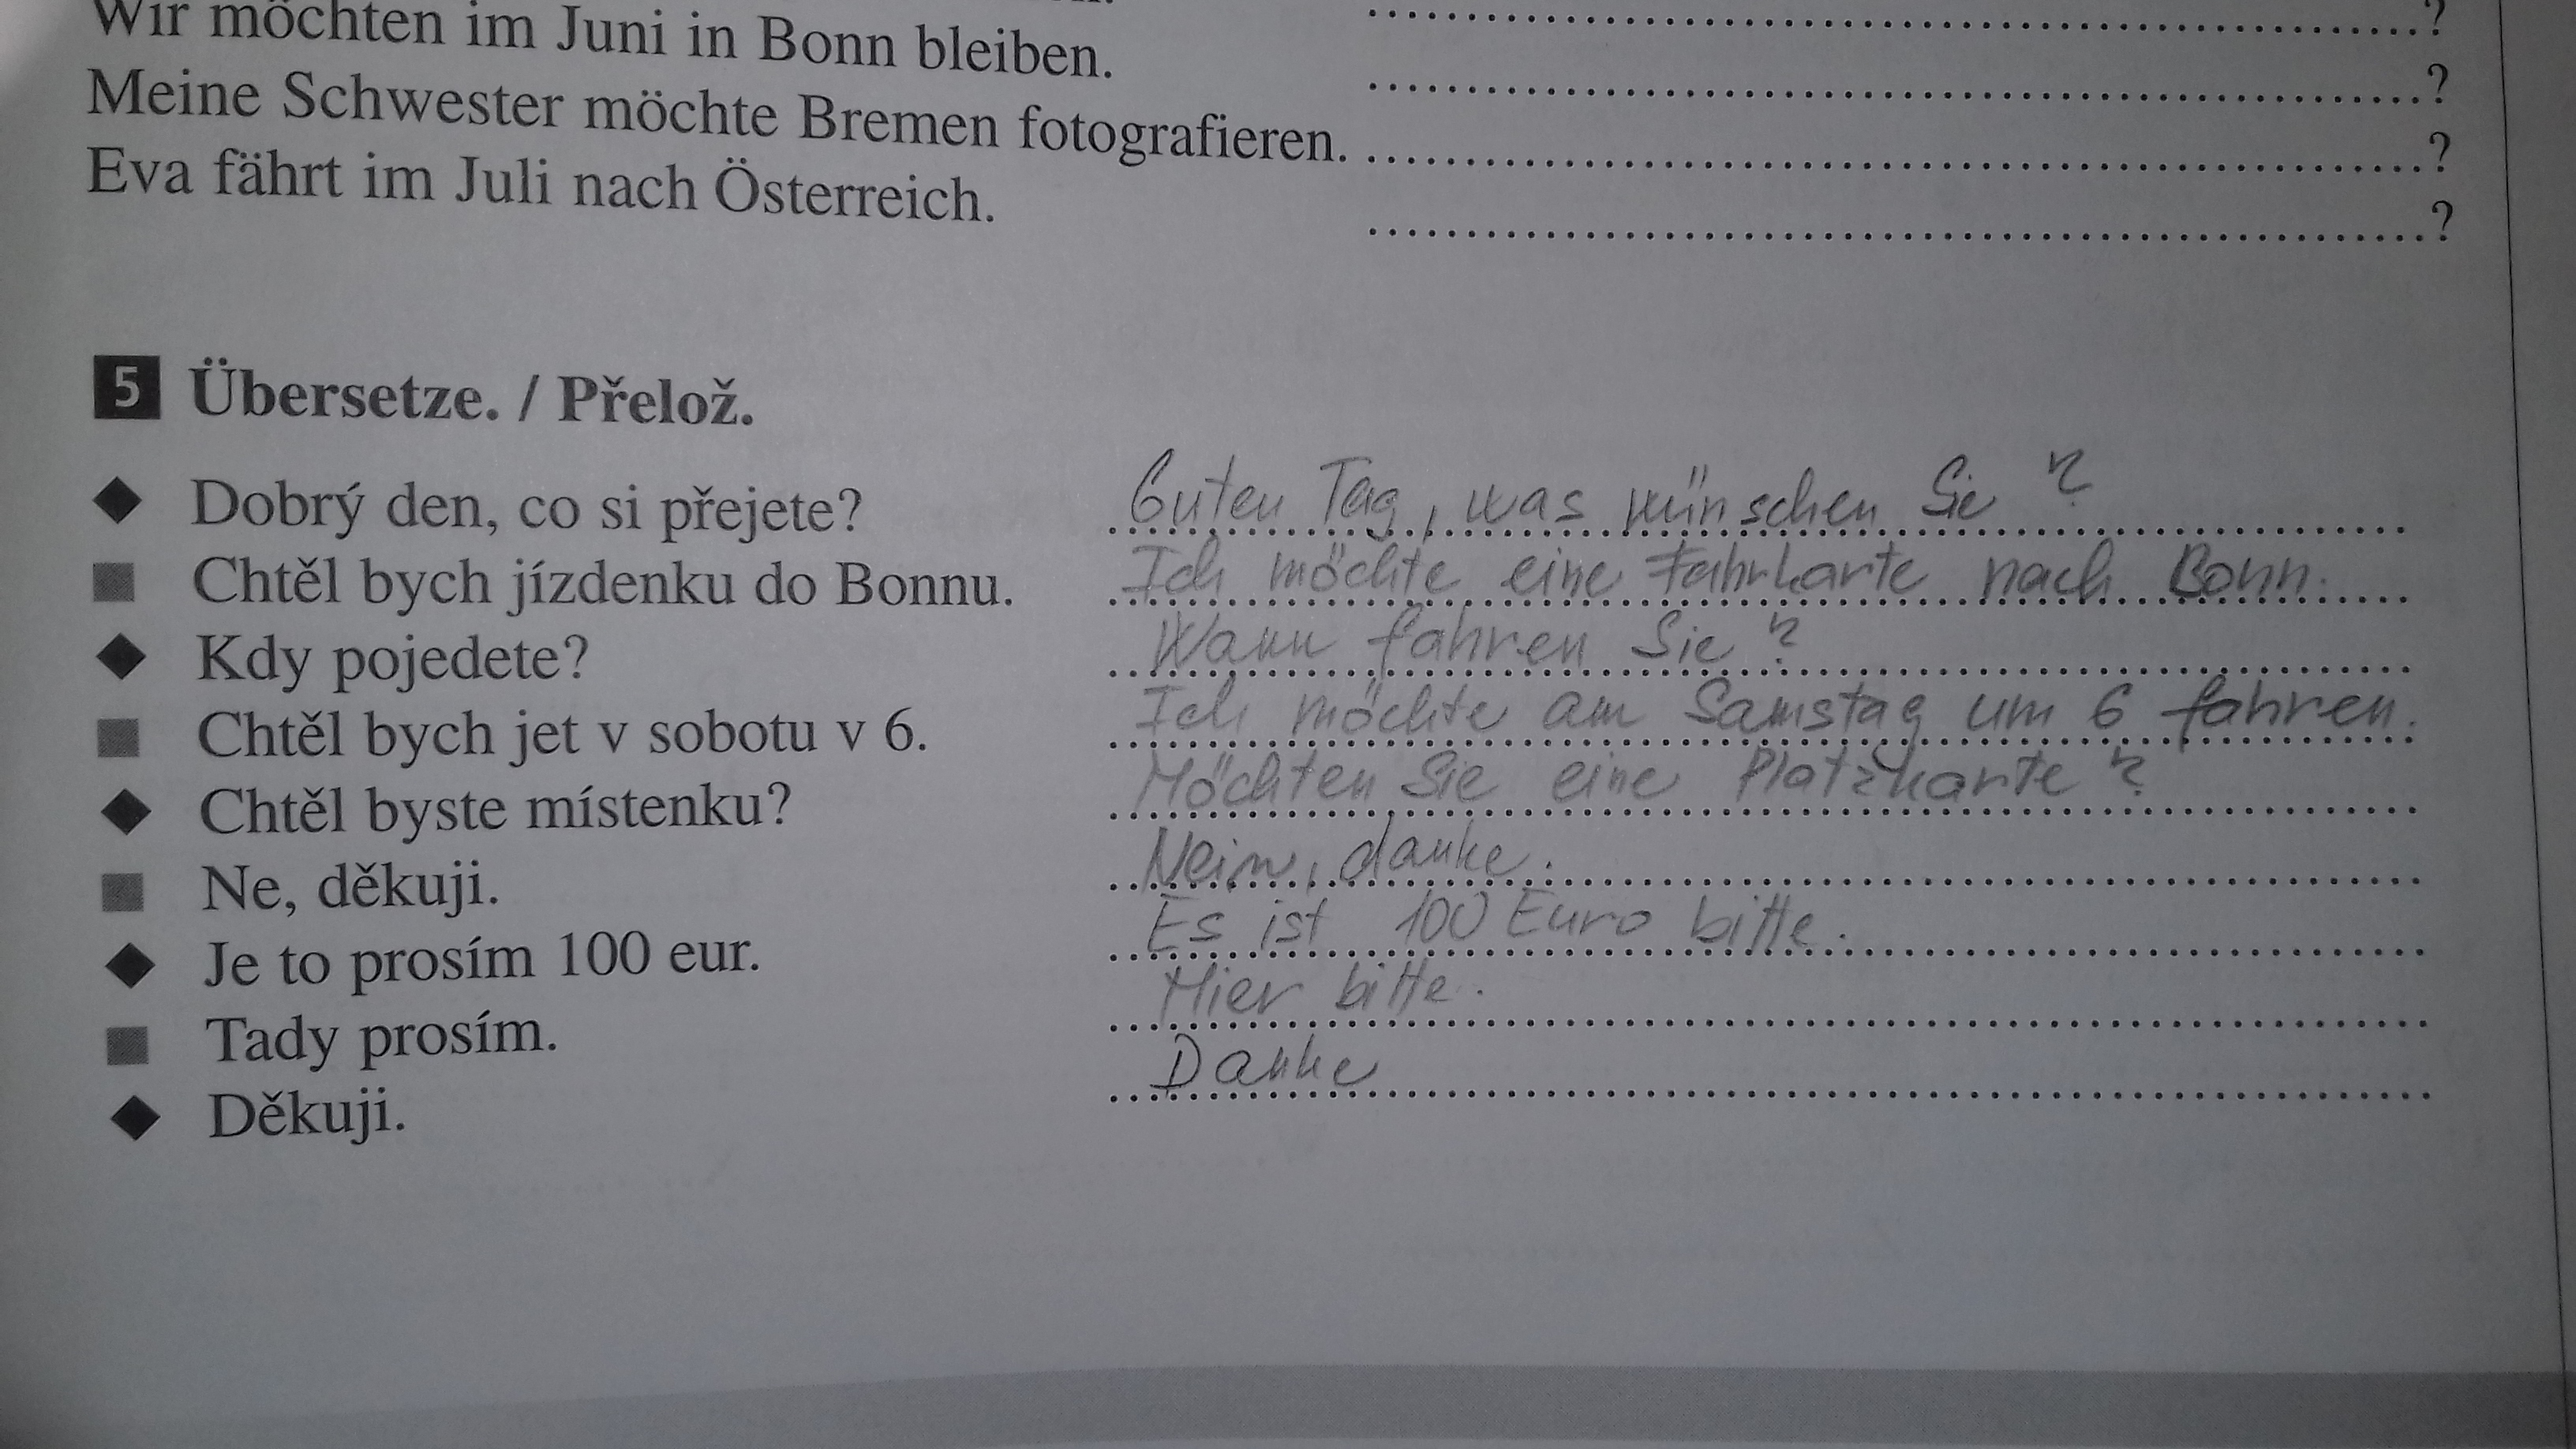 Wir möchten im Juni in Bonn bleiben. ?
Meine Schwester möchte Bremen fotografieren. ?
Eva fährt im Juli nach Österreich. ?
?
5 Übersetze. / Přelož.
Dobrý den, co si přejete? Guten Tag, was wünschen Sie?
Chtěl bych jízdenku do Bonnu. Ich möchte eine Fahrkarte nach Bonn.
Kdy pojedete? Wann fahren Sie?
Chtěl bych jet v sobotu v 6. Ich möchte am Samstag um 6 fahren.
Chtěl byste místenku? Möchten Sie eine Platzkarte?
Ne, děkuji. Nein, danke.
Je to prosím 100 eur. Es ist 100 Euro bitte.
Tady prosím. Hier bitte.
Děkuji. Danke